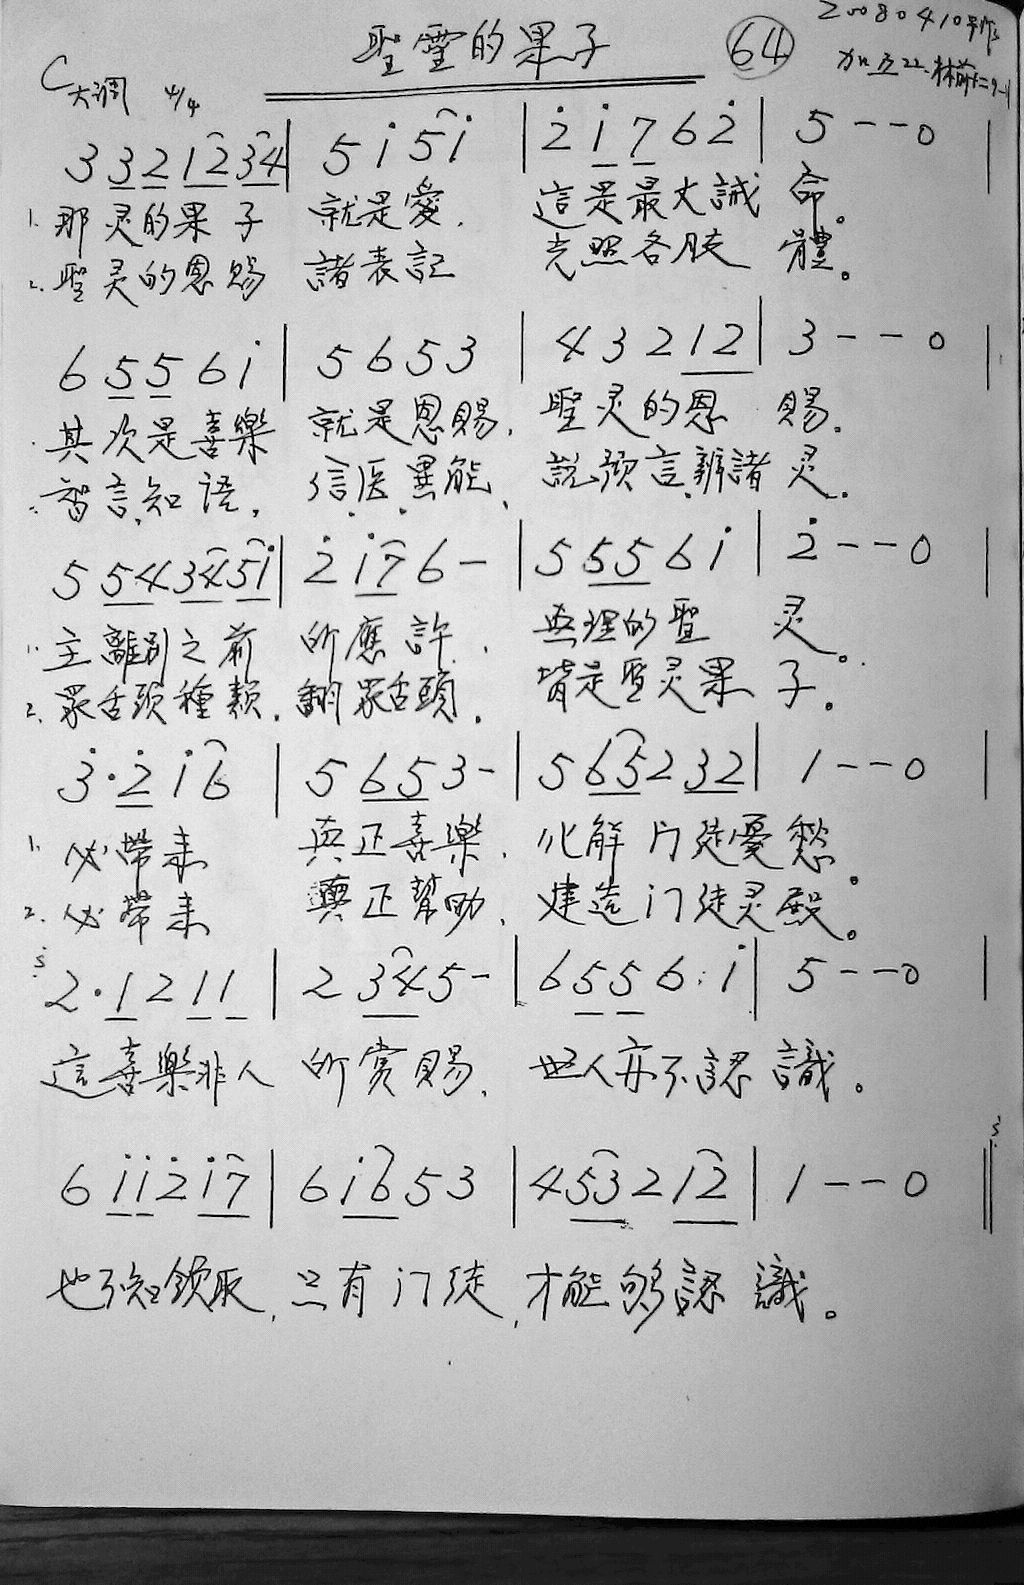 聖靈的果子 64 20080410早作
C大调 4/4 加五22.林前十二9-11
3 3 2 1 2 3 4 | 5 i 5 i | 2̇ i 7 6 2̇ | 5 - - 0 |
1. 那灵的果子 就是愛. 這是最大誡命。
2. 聖灵的恩賜 諸表記 光照各肢體。
6 5 5 6 i | 5 6 5 3 | 4 3 2 1 2 | 3 - - 0 |
其次是喜樂 就是恩賜. 聖灵的恩賜.
智言.知语. 信医異能. 説预言.辨諸灵.
5 5 4 3 4 5 i | 2̇ i 7 6 - | 5 5 5 6 i | 2̇ - - 0 |
1. 主離别之前 所應許. 真理的聖灵。
2. 眾舌頭種類. 翻眾舌頭. 皆是聖灵果子。
3̇ · 2̇ i 6 | 5 6 5 3 - | 5 6 5 2 3 2 | 1 - - 0 |
1. 必帶来 真正喜樂. 化解门徒憂愁。
2. 必帶来 真正幫助. 建造门徒灵殿。
2 · 1 2 1 1 | 2 3 4 5 - | 6 5 5 6 · i | 5 - - 0 |
這喜樂非人 所赏賜. 世人亦不認識。
6 i i 2̇ i 7 | 6 i 6 5 3 | 4 5 3 2 1 2 | 1 - - 0 ||
也不知領取. 只有门徒. 才能够認識。